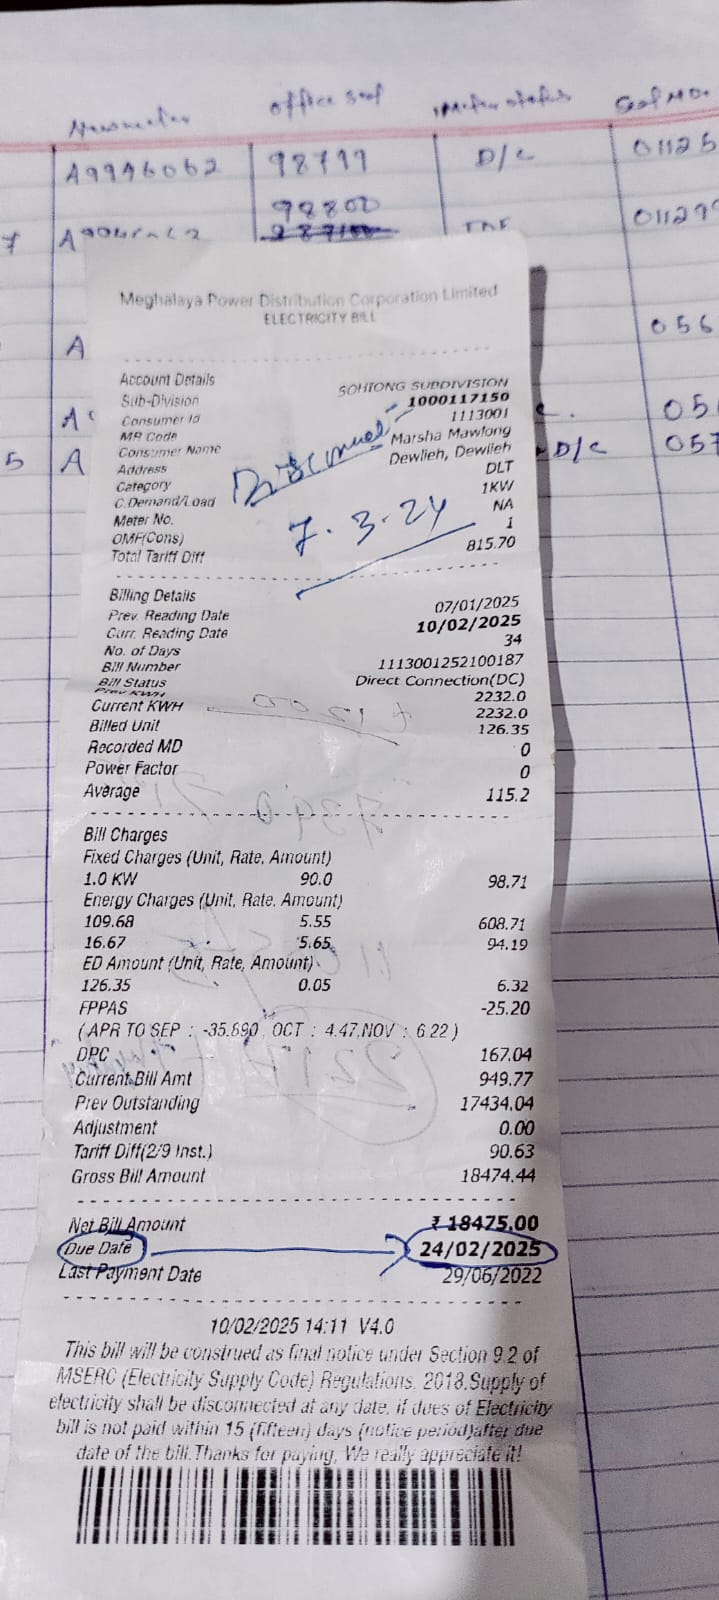 office seal
D/C
A9946062 98799 01125
98800
7 01129
A 056
A 05
5 A D/C 057
Meghalaya Power Distribution Corporation Limited
ELECTRICITY BILL
Account Details
Sub-Division SOHIONG SUBDIVISION
Consumer Id 1000117150
MR Code 1113001
Consumer Name Marsha Mawlong
Address Dewlieh, Dewlieh
Category DLT
C.Demand/Load 1KW
Meter No. NA
OMF(Cons) 1
Total Tariff Diff 815.70
7.3.24
Billing Details
Prev. Reading Date 07/01/2025
Curr. Reading Date 10/02/2025
No. of Days 34
Bill Number 1113001252100187
Bill Status Direct Connection(DC)
Prev KWH 2232.0
Current KWH 2232.0
Billed Unit 126.35
Recorded MD 0
Power Factor 0
Average 115.2
Bill Charges
Fixed Charges (Unit, Rate, Amount)
1.0 KW 90.0 98.71
Energy Charges (Unit, Rate, Amount)
109.68 5.55 608.71
16.67 5.65 94.19
ED Amount (Unit, Rate, Amount)
126.35 0.05 6.32
FPPAS -25.20
( APR TO SEP : -35.890 OCT : 4.47,NOV : 6.22 )
DPC 167.04
Current Bill Amt 949.77
Prev Outstanding 17434.04
Adjustment 0.00
Tariff Diff(2/9 Inst.) 90.63
Gross Bill Amount 18474.44
Net Bill Amount ₹ 18475.00
Due Date 24/02/2025
Last Payment Date 29/06/2022
10/02/2025 14:11 V4.0
This bill will be construed as final notice under Section 9.2 of
MSERC (Electricity Supply Code) Regulations, 2018.Supply of
electricity shall be disconnected at any date, if dues of Electricity
bill is not paid within 15 (fifteen) days (notice period)after due
date of the bill.Thanks for paying, We really appreciate it!